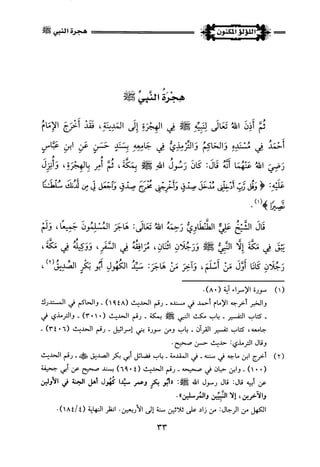 هجرة النبي ﷺ
اللؤلؤ المكنون
هِجْرَةُ النَّبِيِّ ﷺ
ثُمَّ أَذِنَ اللهُ تَعَالَى لِنَبِيِّهِ ﷺ فِي الهِجْرَةِ إِلَى المَدِينَةِ، فَقَدْ أَخْرَجَ الإِمَامُ
أَحْمَدُ فِي مُسْنَدِهِ وَالحَاكِمُ وَالتِّرْمِذِيُّ فِي جَامِعِهِ بِسَنَدٍ حَسَنٍ عَنِ ابنِ عَبَّاسٍ
رَضِيَ اللهُ عَنْهُمَا أَنَّهُ قَالَ: كَانَ رَسُولُ اللهِ ﷺ بِمَكَّةَ، ثُمَّ أُمِرَ بِالهِجْرَةِ، وَأُنْزِلَ
عَلَيْهِ: ﴿ وَقُل رَّبِّ أَدْخِلْنِي مُدْخَلَ صِدْقٍ وَأَخْرِجْنِي مُخْرَجَ صِدْقٍ وَاجْعَل لِّي مِن لَّدُنكَ سُلْطَانًا
نَّصِيرًا ﴾(١).
قَالَ الشَّيْخُ عَلِيٌّ الطَّنْطَاوِيُّ رَحِمَهُ اللهُ تَعَالَى: هَاجَرَ المُسْلِمُونَ جَمِيعًا، وَلَمْ
يَبْقَ فِي مَكَّةَ إِلَّا النَّبِيُّ ﷺ وَرَجُلَانِ اثْنَانِ، مُرَافِقُهُ فِي السَّفَرِ، وَوَكِيلُهُ فِي مَكَّةَ،
رَجُلَانِ كَانَا أَوَّلَ مَنْ أَسْلَمَ، وَآخِرَ مَنْ هَاجَرَ: سَيِّدُ الكُهُولِ أَبُو بَكْرٍ الصِّدِّيقُ(٢)،
(١) سورة الإسراء آية (٨٠).
والخبر أخرجه الإمام أحمد في مسنده ـ رقم الحديث (١٩٤٨) ـ والحاكم في المستدرك
ـ كتاب التفسير ـ باب مكث النبي ﷺ بمكة ـ رقم الحديث (٣٠١٠) ـ والترمذي في
جامعه، كتاب تفسير القرآن ـ باب ومن سورة بني إسرائيل ـ رقم الحديث (٣٤٠٦) ـ
وقال الترمذي: حديث حسن صحيح.
(٢) أخرج ابن ماجه في سننه ـ في المقدمة ـ باب فضائل أبي بكر الصديق ﷺ ـ رقم الحديث
(١٠٠) ـ وابن حبان في صحيحه ـ رقم الحديث (٦٩٠٤) بسند صحيح عن أبي جحيفة
عن أبيه قال: قال رسول الله ﷺ: «أبو بكر وعمر سيِّدا كُهُول أهل الجنة في الأولين
والآخرين، إلا النبيِّين والمرسلين».
الكهل من الرجال: من زاد على ثلاثين سنة إلى الأربعين. انظر النهاية (١٨٤/٤).
٣٣